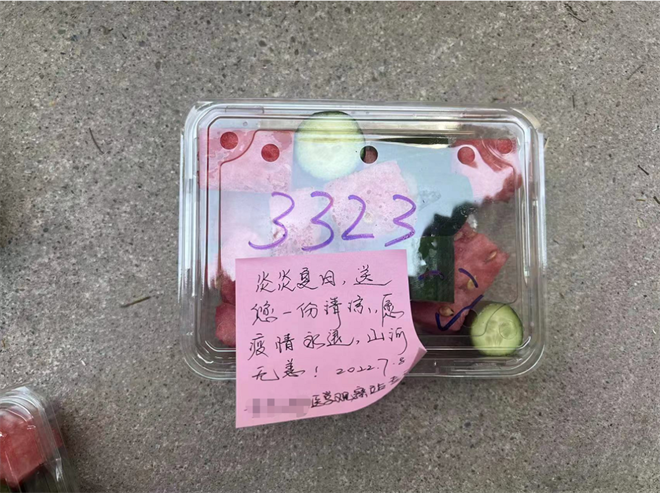 3323
炎炎夏日，送
您一份清凉，愿
疫情永退，山河
无恙！2022.7.
医学观察